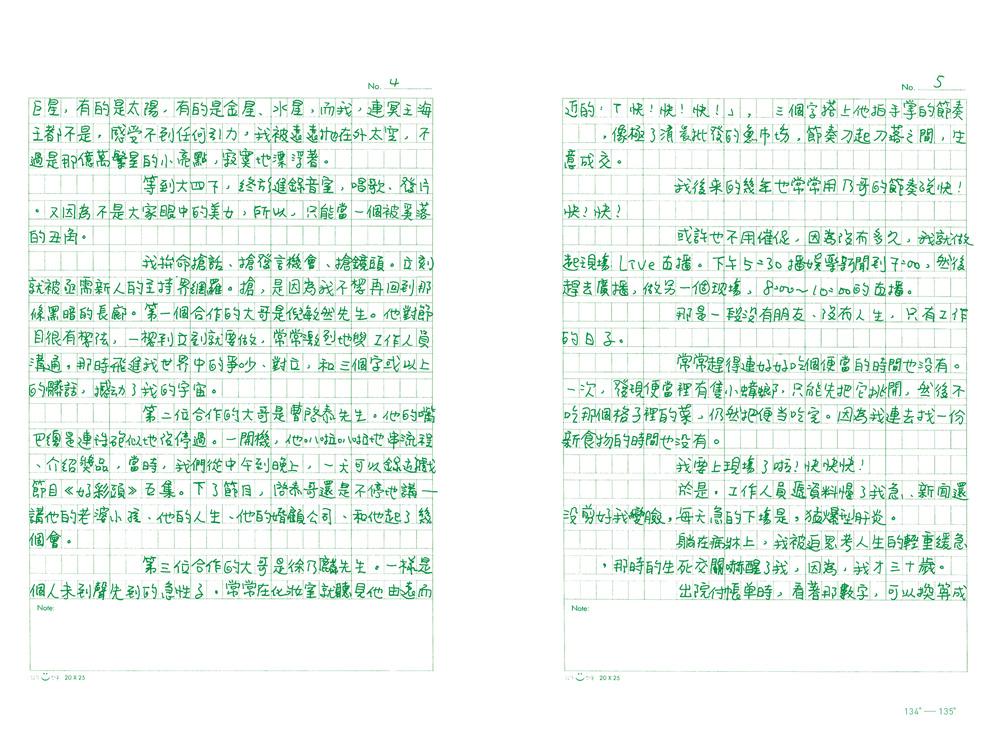 No. 4
巨星，有的是太陽，有的是金星、水星，而我，連冥王海
王都不是，感受不到任何引力，我被遠遠地在外太空，不
過是那億萬繁星的小亮點，寂寞地漂浮著。
等到大四下，終於進錄音室，唱歌、發片
。又因為不是大家眼中的美女，所以，只能當一個被奚落
的丑角。
我拚命搶話、搶發言機會、搶鏡頭。立刻
就被亟需新人的主持界網羅。搶，是因為我不想再回到那
條黑暗的長廊。第一個合作的大哥是倪敏然先生。他對節
目很有想法，一想到立刻就要做，常常激烈地與工作人員
溝通，那時飛進我世界中的爭吵、對立，和三個字或以上
的髒話，撼動了我的宇宙。
第二位合作的大哥是曹啓泰先生。他的嘴
巴總是連珠砲似地沒停過。一開機，他叭啦叭啦地串流程
、介紹獎品，當時，我們從中午到晚上，一天可以錄五集
節目《好彩頭》五集。下了節目，啓泰哥還是不停地講—
講他的老婆小孩、他的人生、他的婚顧公司、和他起了幾
個會。
第三位合作的大哥是徐乃麟先生。一樣是
個人未到聲先到的急性子。常常在化妝室就聽見他由遠而
Note:
20 X 25
No. 5
近的：「快！快！快！」，三個字搭上他拍手掌的節奏
，像極了清晨批發的魚市場，節奏刀起刀落之間，生
意成交。
我後來的幾年也常常用乃哥的節奏說快！
快！快！
或許也不用催促，因為沒有多久，我就做
起現場Live直播。下午5:30播娛樂新聞到7:00，然後
趕去廣播，做另一個現場，8:00～10:00的直播。
那是一段沒有朋友、沒有人生，只有工作
的日子。
常常趕得連好好吃個便當的時間也沒有。
一次，發現便當裡有隻小蟑螂，只能先把它挑開，然後不
吃那個格子裡的菜，仍然把便当吃完。因為我連去找一份
新食物的時間也沒有。
我要上現場了啦！快快快！
於是，工作人員遞資料慢了我急、新聞還
沒剪好我變臉，每天急的下場是，猛爆型肝炎。
躺在病牀上，我被迫思考人生的輕重緩急
，那時的生死交關嚇醒了我，因為，我才三十歲。
出院付帳單時，看著那數字，可以換算成
Note:
20 X 25
134°—135°